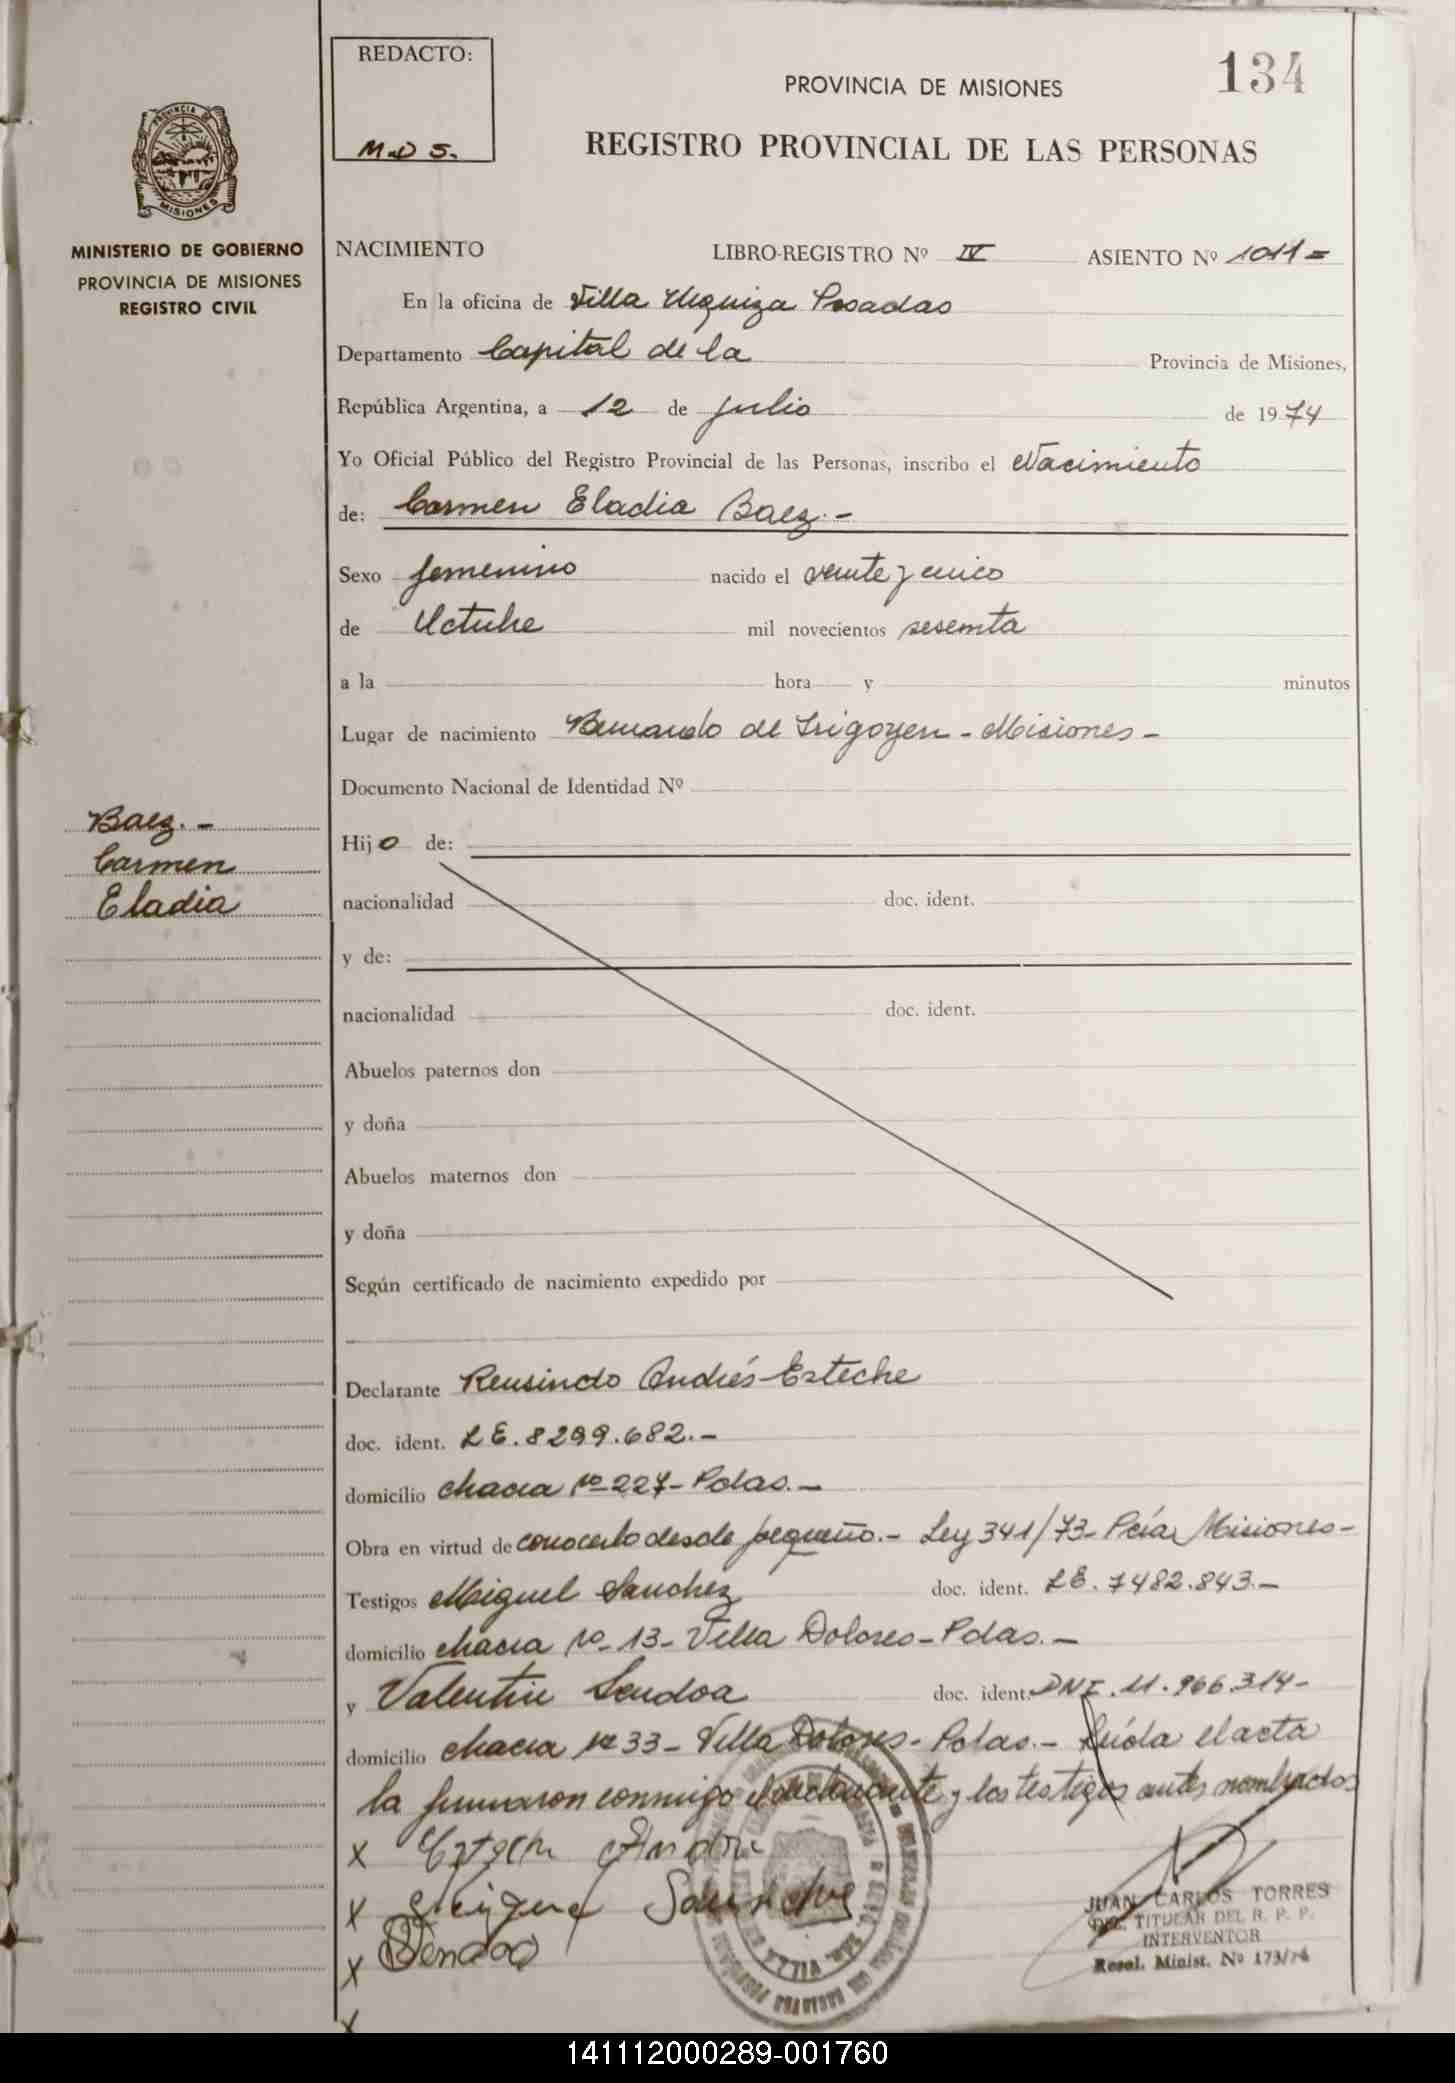 134
REDACTO:
M.D S.
PROVINCIA DE MISIONES
REGISTRO PROVINCIAL DE LAS PERSONAS
PROVINCIA DE
MISIONES
MINISTERIO DE GOBIERNO
PROVINCIA DE MISIONES
REGISTRO CIVIL
NACIMIENTO LIBRO-REGISTRO Nº IV ASIENTO Nº 1011=
En la oficina de Villa Urquiza Posadas
Departamento Capital de la Provincia de Misiones,
República Argentina, a 12 de julio de 1974
Yo Oficial Público del Registro Provincial de las Personas, inscribo el Nacimiento
de: Carmen Eladia Baez.-
Sexo femenino nacido el veinte y cinco
de Octubre mil novecientos sesenta
a la hora y minutos
Lugar de nacimiento Bernardo de Irigoyen - Misiones -
Documento Nacional de Identidad Nº
Baez.-
Carmen
Eladia
Hijo de:
nacionalidad doc. ident.
y de:
nacionalidad doc. ident.
Abuelos paternos don
y doña
Abuelos maternos don
y doña
Según certificado de nacimiento expedido por
Declarante Reusindo Andrés Esteche
doc. ident. L E. 8299.682.-
domicilio chacra nº 227- Pdas.-
Obra en virtud de conocerlo desde pequeño.- Ley 341/73- Pcia Misiones-
Testigos Miguel Sanchez doc. ident. LE. 7482.843.-
domicilio chacra nº 13- Villa Dolores- Pdas.-
y Valentin Sendoa doc. ident. DNI. 11.966.314-
domicilio chacra nº 33- Villa Dolores- Pdas.- Leída el acta
la firmaron conmigo el declarante y los testigos antes nombrados
x Andre
x Sanche
x Sendoa
x
JUAN CARLOS TORRES
TITULAR DEL R. P. P.
INTERVENTOR
Resol. Minist. Nº 173/74
141112000289-001760